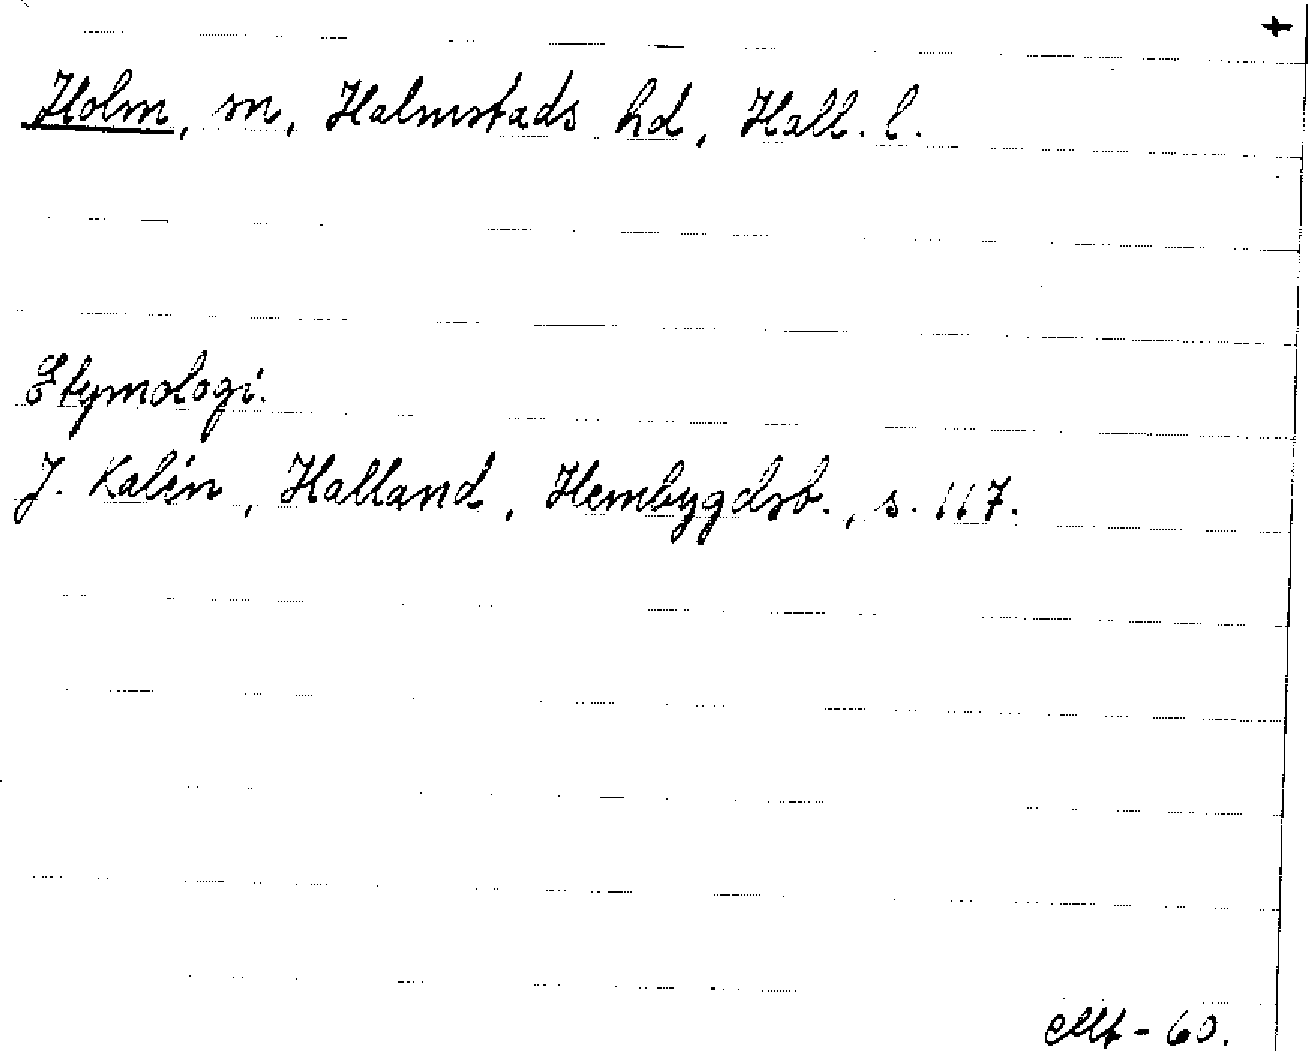 +
Holm, sn, Halmstads hd, Hall. l.
Etymologi.
J. Kalén, Halland, Hembygdsb., s. 117.
- 60.